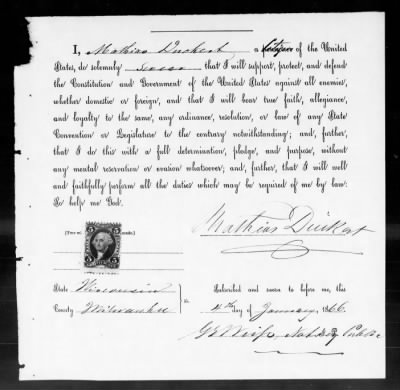 I, Mathias Duckert a citizen of the United
States, do solemnly swear that I will support, protect, and defend
the Constitution and Government of the United States against all enemies,
whether domestic or foreign, and that I will bear true faith, allegiance,
and loyalty to the same, any ordinance, resolution, or law of any State
Convention or Legislature to the contrary notwithstanding; and, further,
that I do this with a full determination, pledge, and purpose, without
any mental reservation or evasion whatsoever; and, further, that I will well
and faithfully perform all the duties which may be required of me by law:
So help me God.
Mathias Duckert
State Wisconsin
County Milwaukee
ss.
Subscribed and sworn to before me, this
4th day of January, 1866.
Notary Public